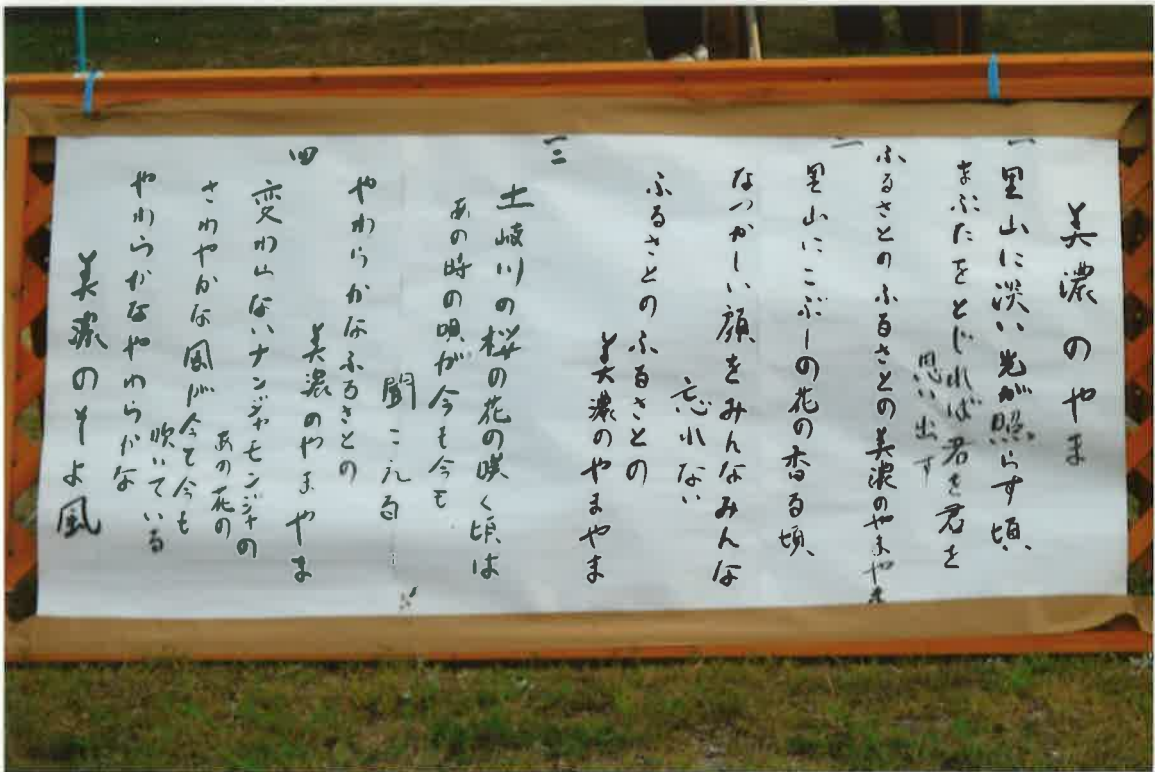 美濃のやま
一
里山に淡い光が照らす頃、
まぶたをとじれば君を君を
思い出す
ふるさとのふるさとの美濃のやまやま
二
里山にこぶしの花の香る頃、
なつかしい顔をみんなみんな
忘れない
ふるさとのふるさとの
美濃のやまやま
三
土岐川の桜の花の咲く頃は
あの時の唄が今も今も
聞こえる
やわらかなふるさとの
美濃のやまやま
四
変わらないナンジャモンジャの
あの花の
さわやかな風が今も今も
吹いている
やわらかなやわらかな
美濃のそよ風